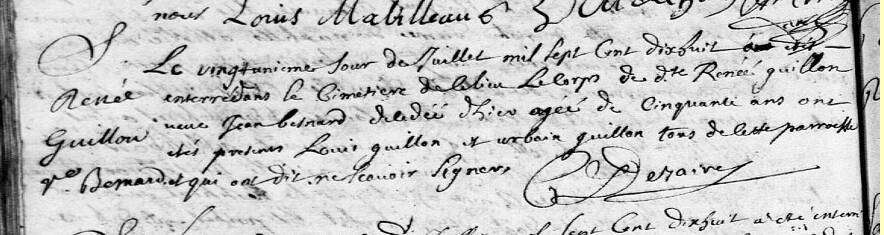 nous Louis Mabilleau
S
Le vingtunieme Jour de Juillet mil sept Cent dixhuit a esté
Renée interré dans le Cimetiere de ce lieu Le Corps de d.te Renée guillon
Guillon veuve Jean besnard decedée d'hier agée de Cinquante ans ont
estés presens Louis guillon et urbain guillon tous de cette parroisse
v.e Bernard et qui ont dit ne scavoir signer
Dezaire
sept Cent dixhuit a eté interré